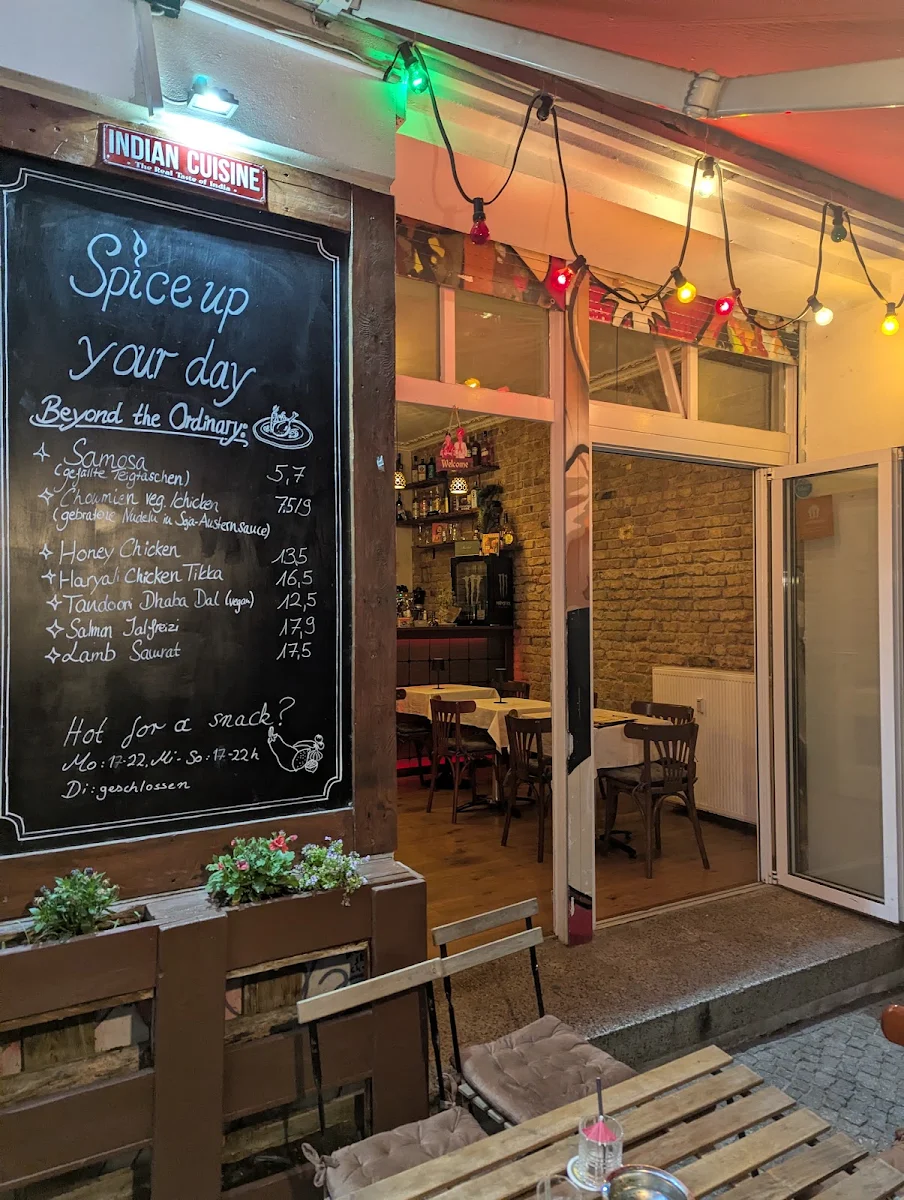 INDIAN CUISINE
- The Real Taste of India -
Spice up
your day
Beyond the Ordinary:
Samosa
(gefüllte Teigtaschen) 5,7
Choumien veg./chicken 7,5/9
(gebratene Nudeln in Soja-Austernsauce)
Honey Chicken 13,5
Haryali Chicken Tikka 16,5
Tandoori Dhaba Dal (vegan) 12,5
Salmon Jalfreizi 17,9
Lamb Saurat 17,5
Hot for a snack?
Mo: 17-22, Mi - So: 17-22h
Di: geschlossen
Welcome